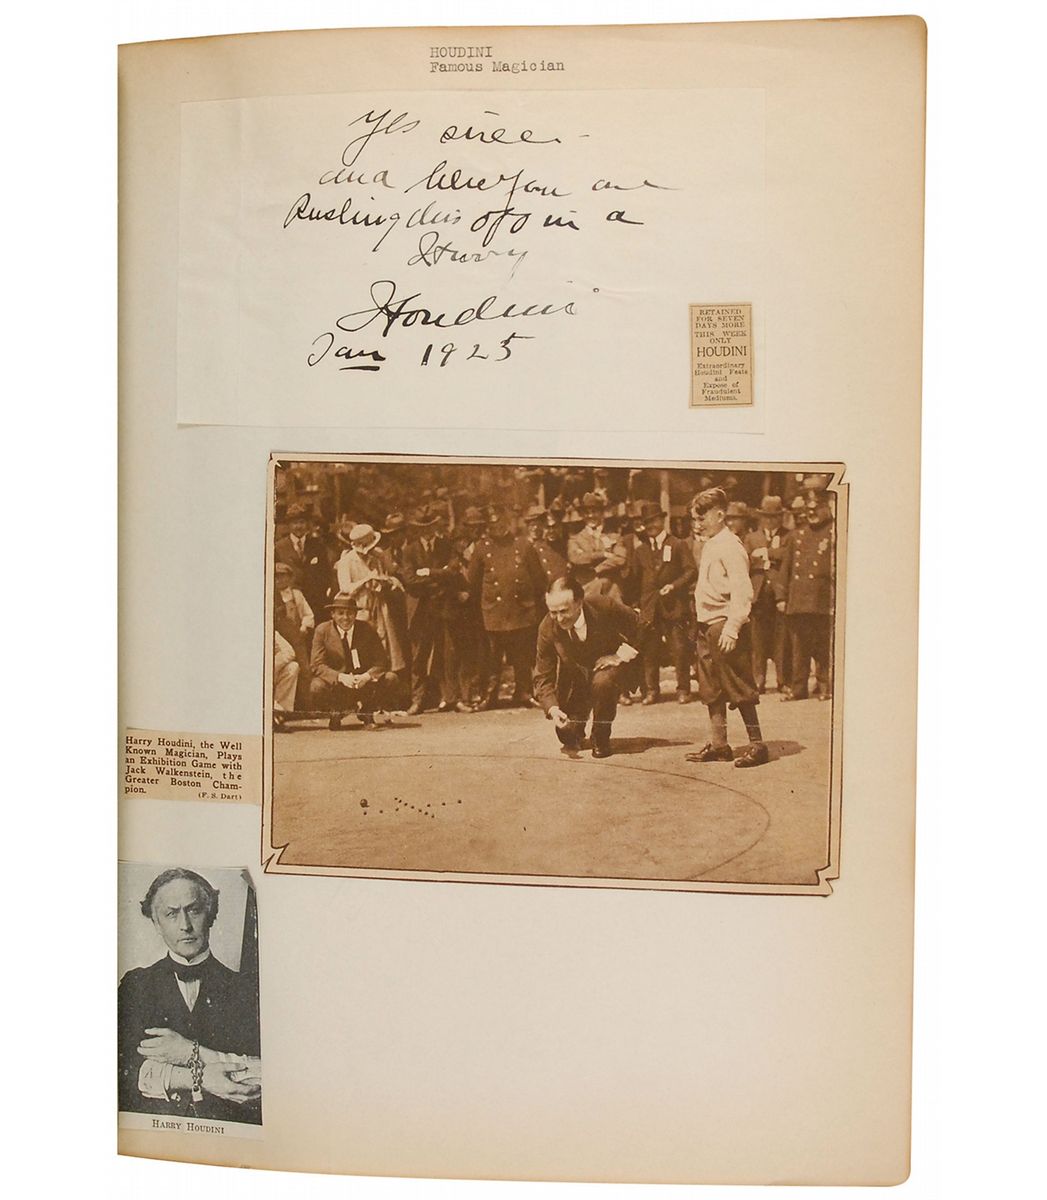 HOUDINI
Famous Magician
Yes siree -
and here you are
Rushing this off in a
Hurry
Houdini
Jan 1925
RETAINED
FOR SEVEN
DAYS MORE
THIS WEEK
ONLY
HOUDINI
Extraordinary
Houdini Feats
and
Expose of
Fraudulent
Mediums.
Harry Houdini, the Well
Known Magician, Plays
an Exhibition Game with
Jack Walkenstein, the
Greater Boston Cham-
pion. (F. S. Dart)
HARRY HOUDINI